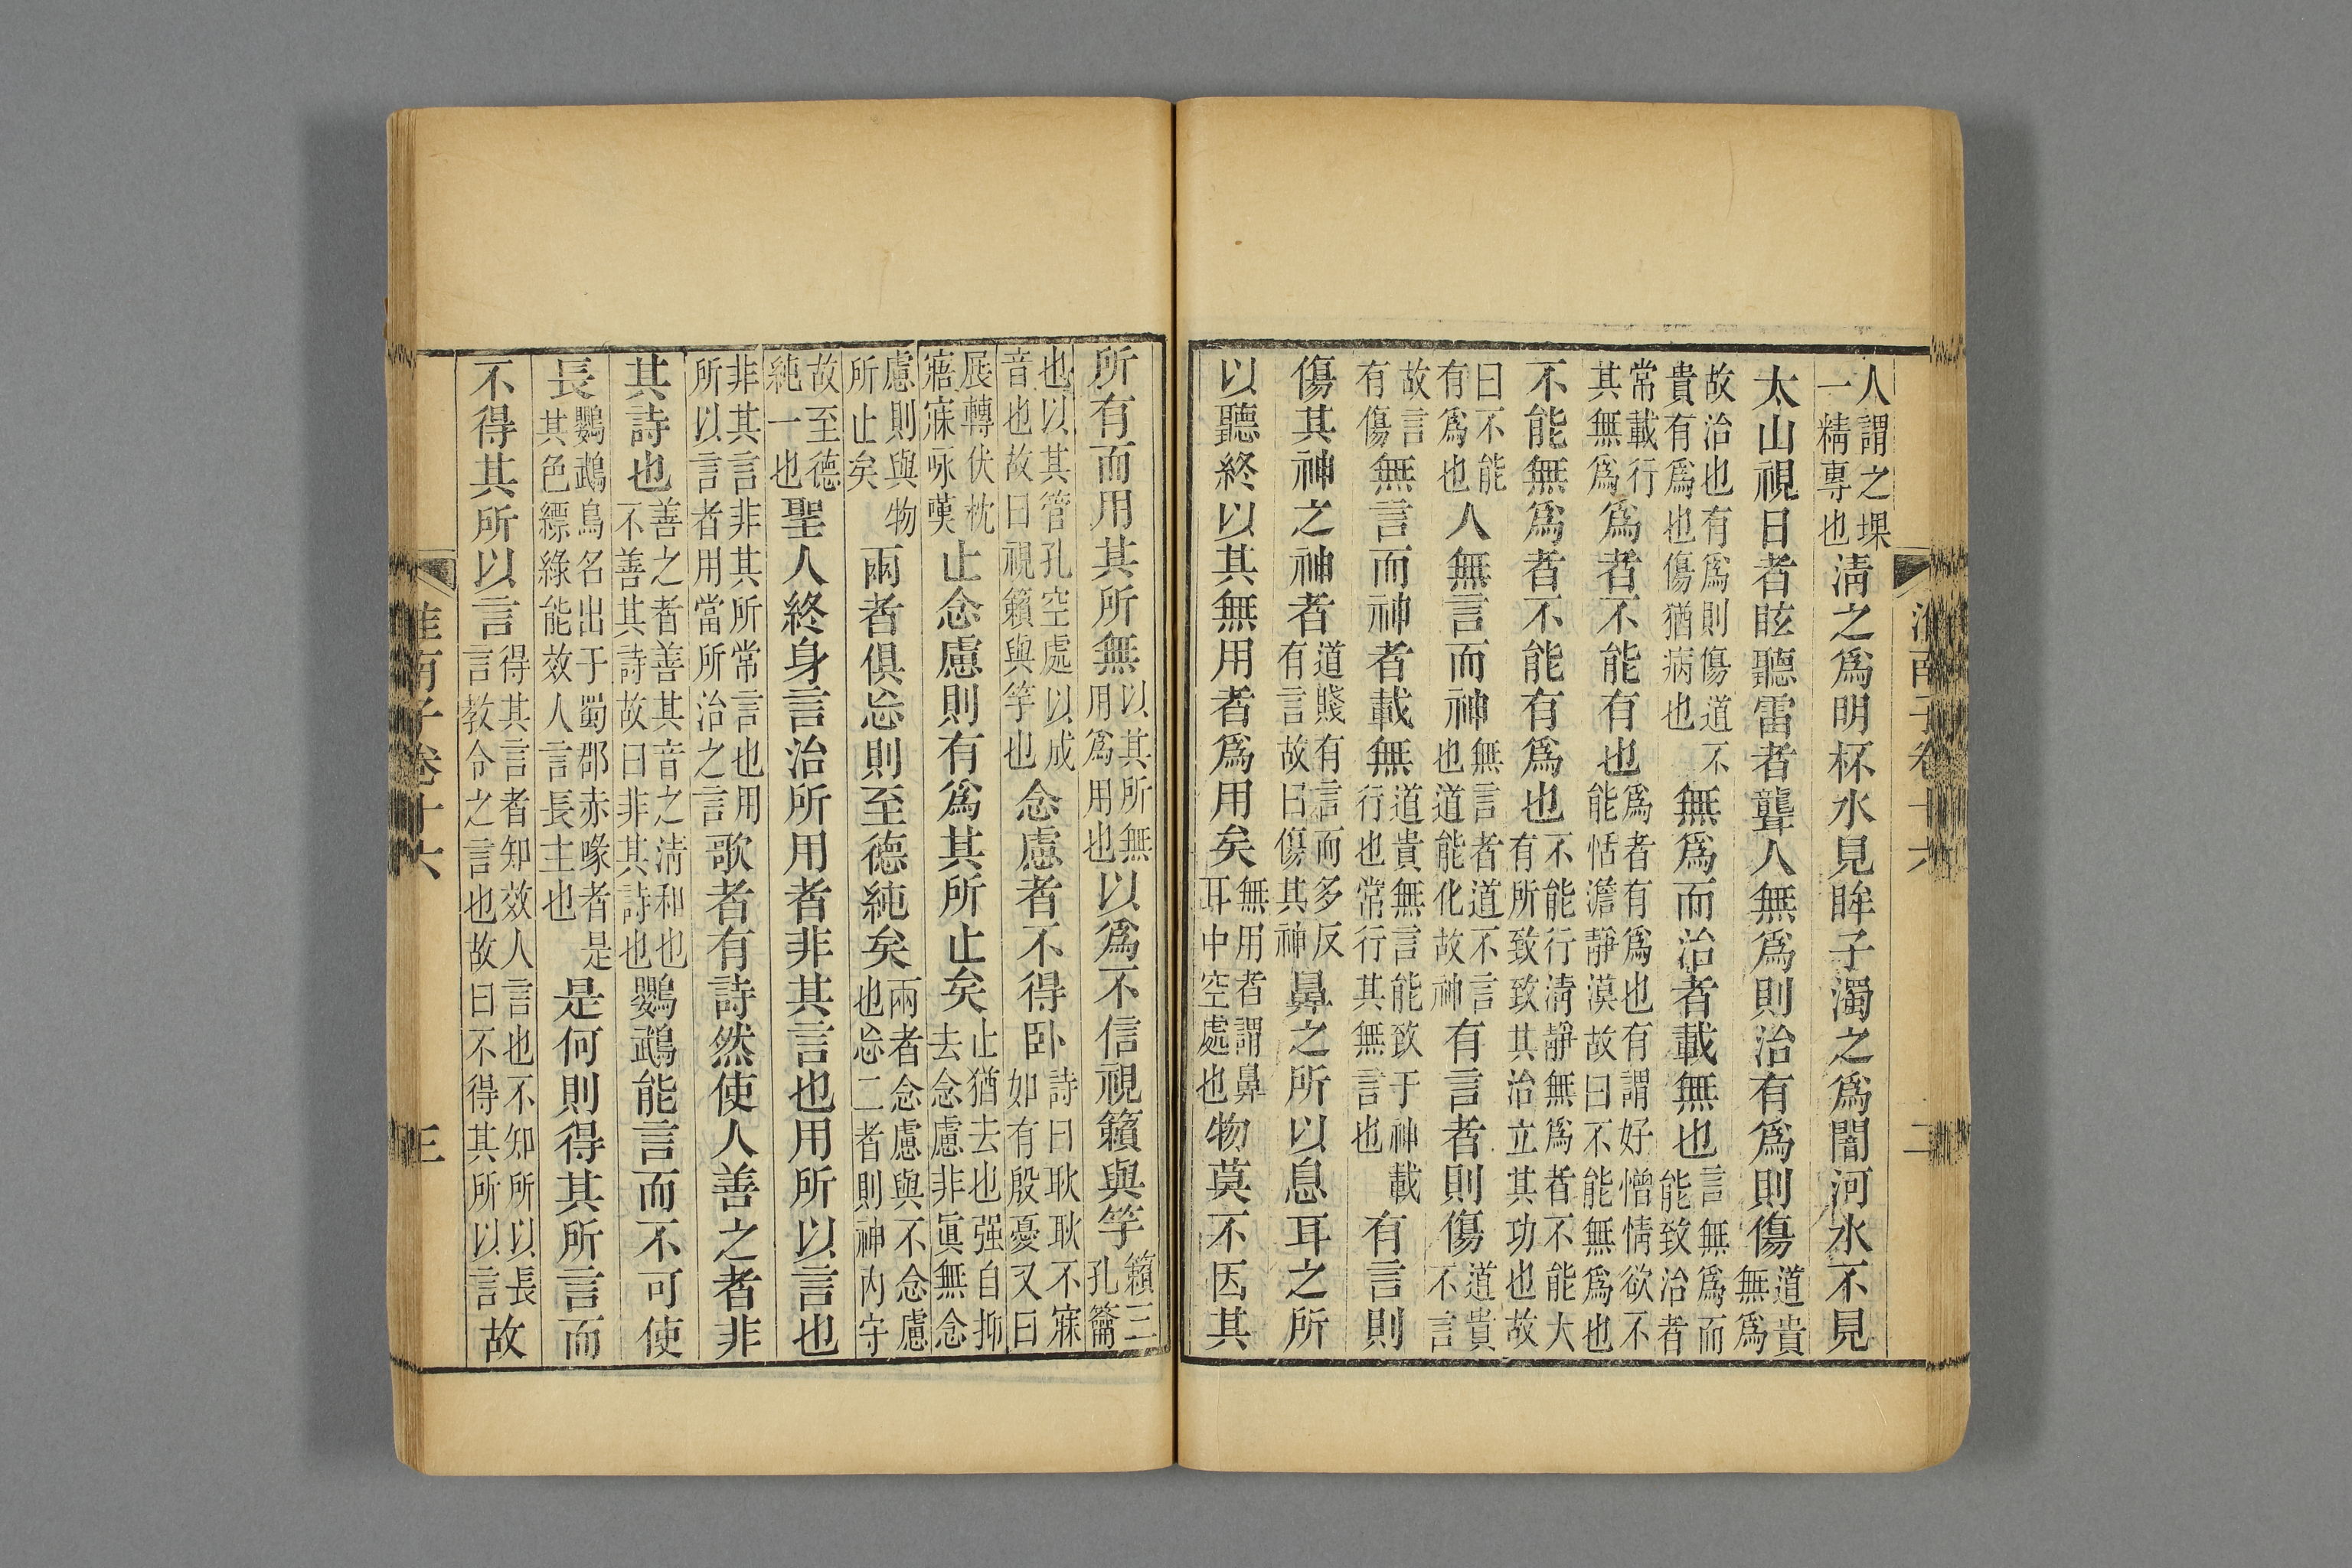 淮南子卷十六　二
人謂之堁一精專也清之爲明杯水見眸子濁之爲闇河水不見
太山視日者眩聽雷者聾人無爲則治有爲則傷道貴無爲
故治也有爲則傷道不貴有爲也傷猶病也無爲而治者載無也言無爲而能致治者
常載行其無爲爲者不能有也爲者有爲也有謂好憎情欲不能恬澹靜漠故曰不能無爲也
不能無爲者不能有爲也不能行清靜無爲者不能大有所致致其治立其功也故
曰不能有爲也人無言而神無言者道不言也道能化故神有言者則傷道貴不言
故言有傷無言而神者載無道貴無言能致于神載行也常行其無言也有言則
傷其神之神者道賤有言而多反有言故曰傷其神鼻之所以息耳之所
以聽終以其無用者爲用矣無用者謂鼻耳中空處也物莫不因其
所有而用其所無以其所無用爲用也以爲不信視籟與竽籟三孔籥
也以其管孔空處以成音也故曰視籟與竽也念慮者不得卧詩曰耿耿不寐如有殷憂又曰
展轉伏枕寤寐咏嘆止念慮則有爲其所止矣止猶去也强自抑去念慮非眞無念
慮則與物所止矣兩者俱忘則至德純矣兩者念慮與不念慮也忘二者則神内守
故至德純一也聖人終身言治所用者非其言也用所以言也
非其言非其所常言也用所以言者用當所治之言歌者有詩然使人善之者非
其詩也善之者善其音之清和也不善其詩故曰非其詩也鸚鵡能言而不可使
長鸚鵡鳥名出于蜀郡赤喙者是其色縹綠能效人言長主也是何則得其所言而
不得其所以言得其言者知效人言也不知所以長言教令之言也故曰不得其所以言故
淮南子卷十六　三